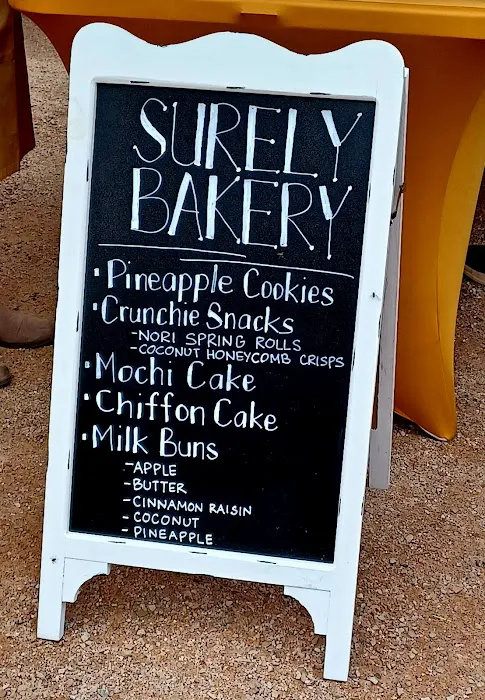 SURELY
BAKERY
· Pineapple Cookies
· Crunchie Snacks
- NORI SPRING ROLLS
- COCONUT HONEYCOMB CRISPS
· Mochi Cake
· Chiffon Cake
· Milk Buns
- APPLE
- BUTTER
- CINNAMON RAISIN
- COCONUT
- PINEAPPLE